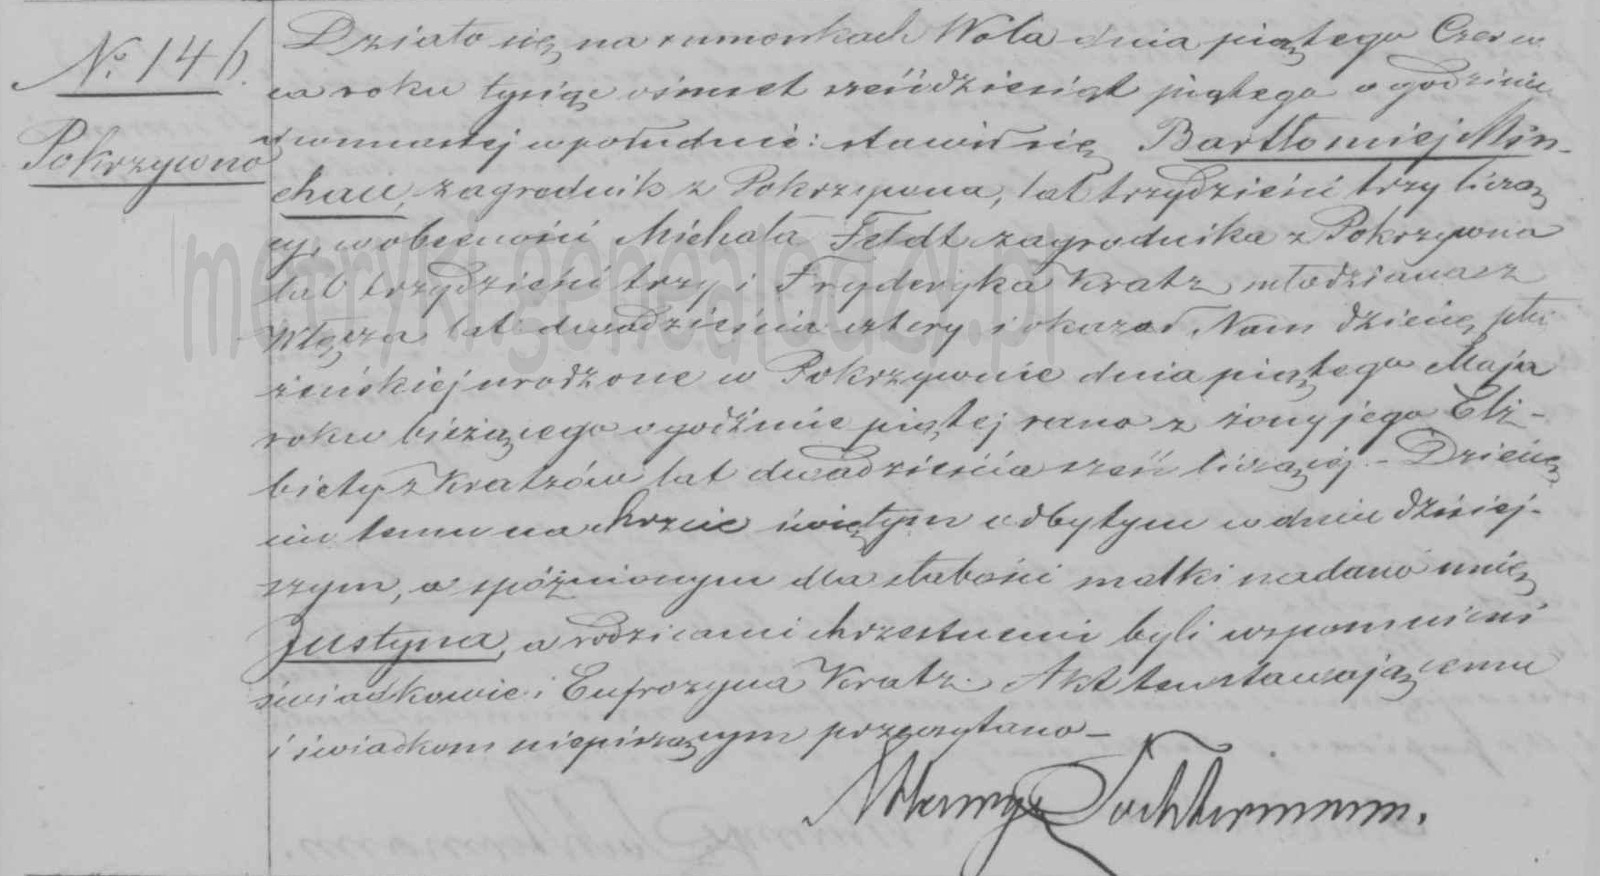 No 146.
Pokrzywno
Działo się na rumonkach Wola dnia piątego Czerw
ca roku tysiąc ośmset sześćdziesiąt piątego o godzinie
dwunastej w południe: stawił się Bartłomiej Min-
chau, zagrodnik z Pokrzywna, lat trzydzieści trzy liczą
cy, w obecności Michała Feldt zagrodnika z Pokrzywna
lat trzydzieści trzy i Fryderyka Kratz młodziana z
Włęcza lat dwadzieścia cztery i okazał Nam dziecię płci
żeńskiej urodzone w Pokrzywnie dnia piątego Maja
roku bieżącego o godzinie piątej rano z żony jego Elż-
biety z Kratzów lat dwadzieścia sześć liczącej. - Dziecię
ciu temu na chrzcie świętym odbytym w dniu dzisiej-
szym, a spóźnionym dla słabości matki nadano imię
Justyna, a rodzicami chrzestnemi byli wspomnieni
świadkowie i Eufrozyna Kratz. Akt ten stawającemu
i świadkom niepiszącym przeczytano -
Tochtermann.
metryki.genealodzy.pl